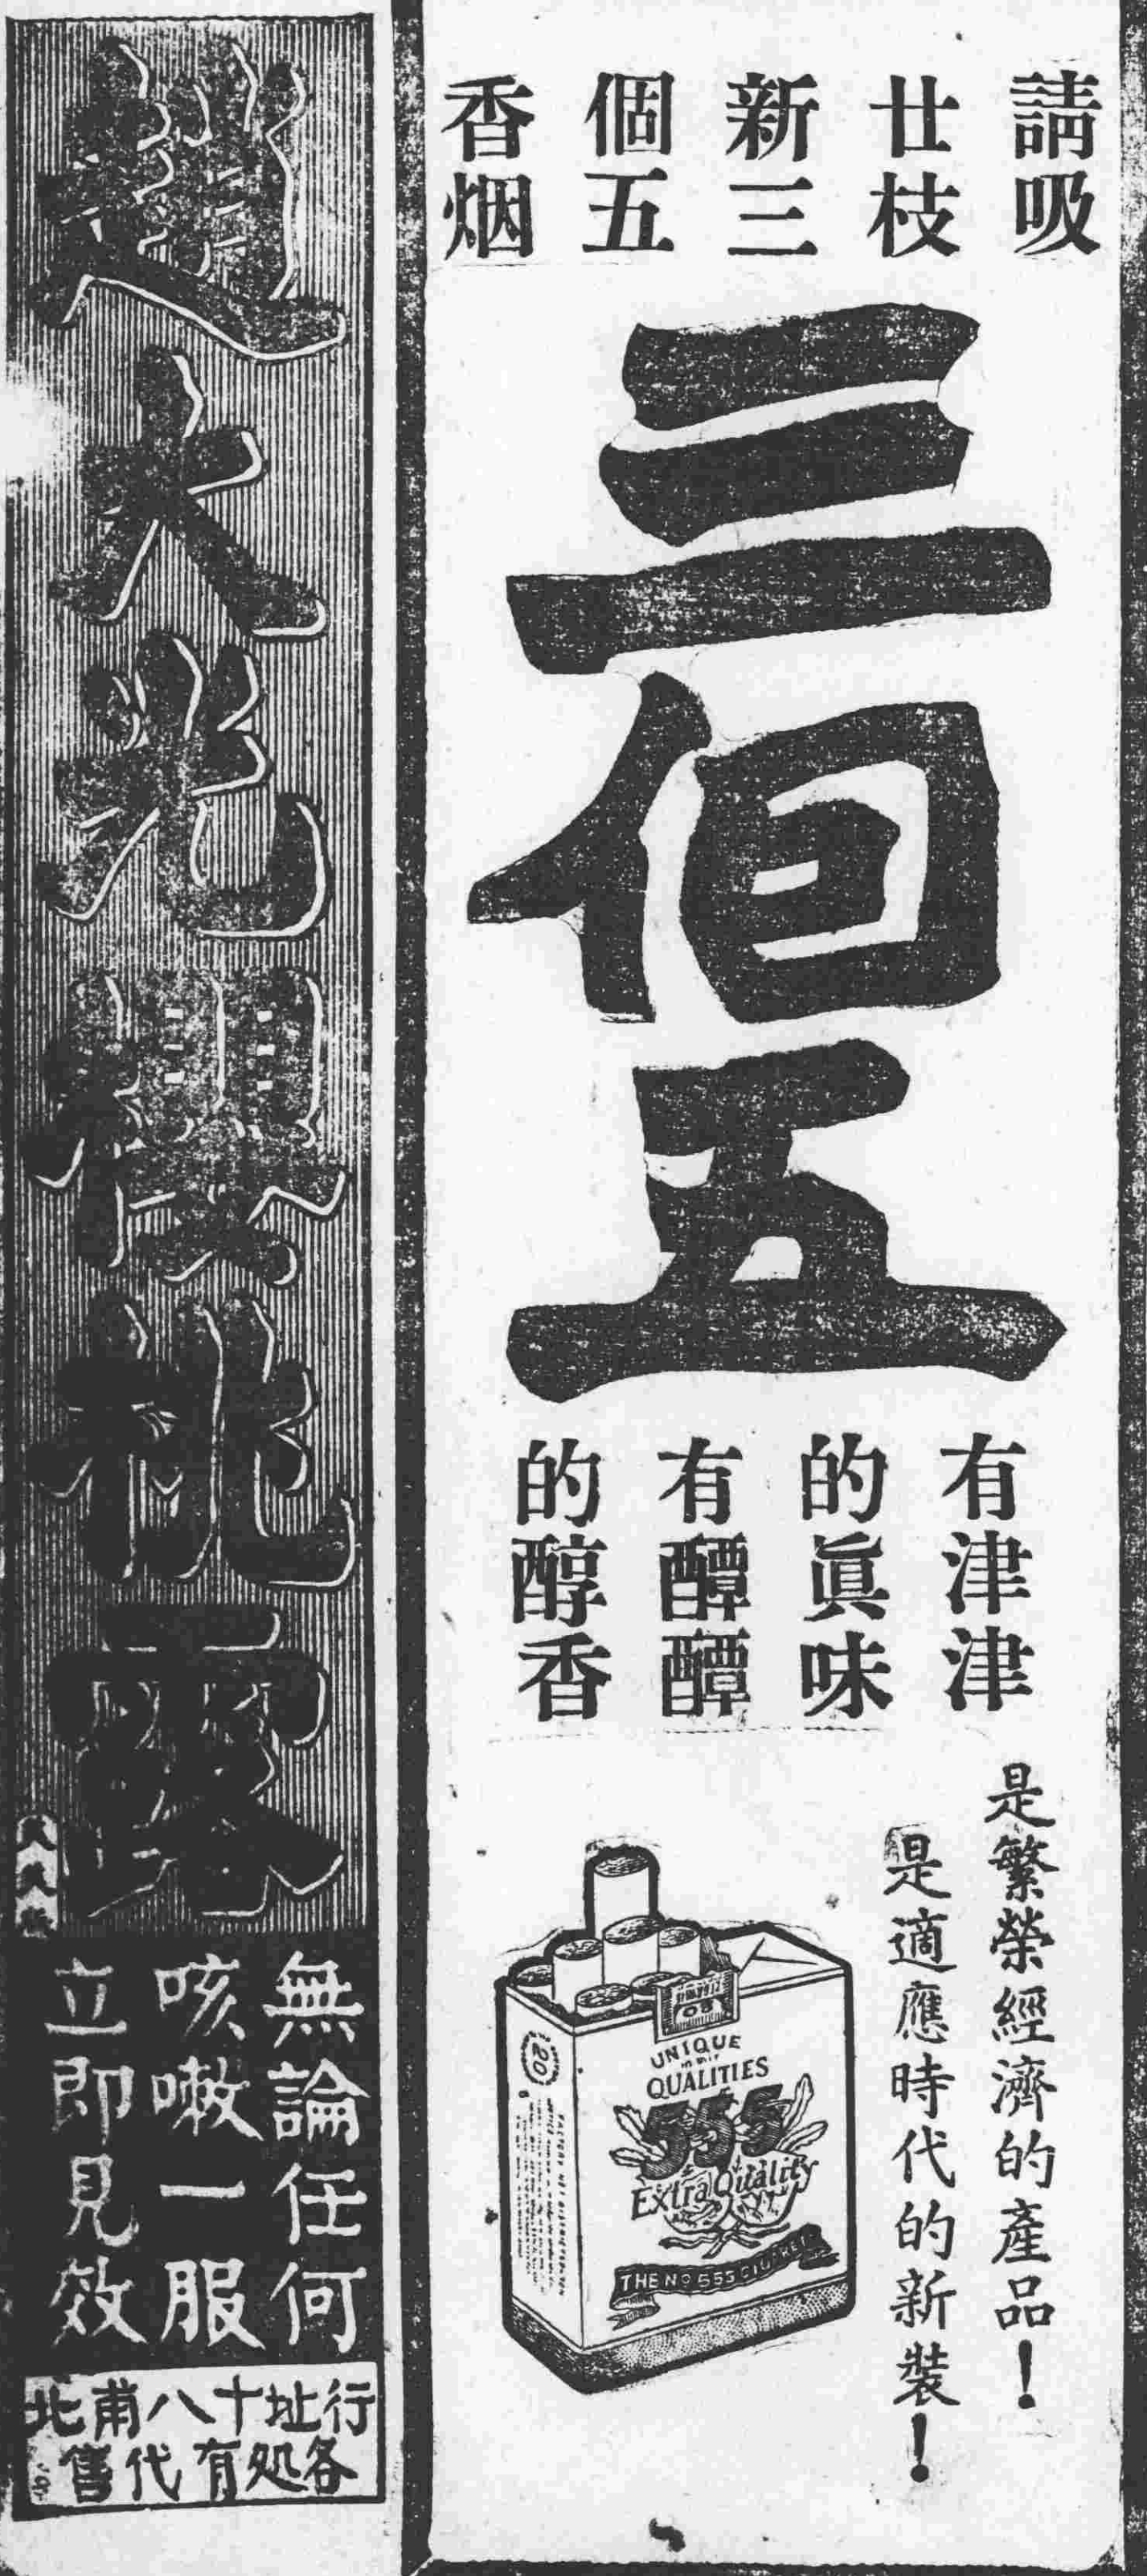 請吸
廿枝
新三
個五
香烟
三個五
有津津
的眞味
有醰醰
的醇香
是繁榮經濟的產品！
是適應時代的新裝！
20
UNIQUE
QUALITIES
555
Extra Quality
THE No 555
趙大光櫻桃露
無論任何
咳嗽一服
立即見效
行址十八甫北
各処有代售